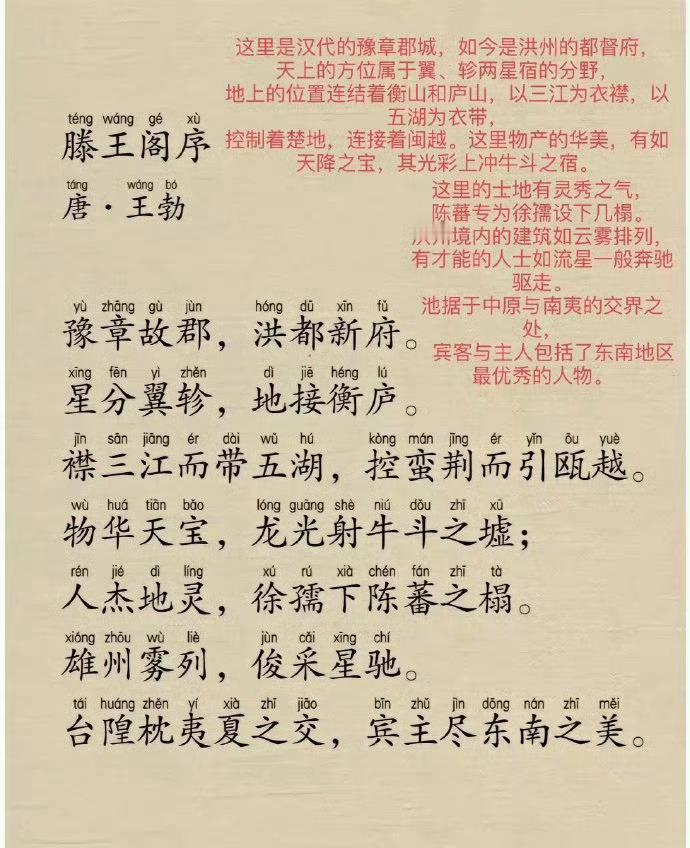 这里是汉代的豫章郡城，如今是洪州的都督府，
天上的方位属于翼、轸两星宿的分野，
地上的位置连结着衡山和庐山，以三江为衣襟，以
五湖为衣带，
控制着楚地，连接着闽越。这里物产的华美，有如
天降之宝，其光彩上冲牛斗之宿。
这里的士地有灵秀之气，
陈蕃专为徐孺设下几榻。
州境内的建筑如云雾排列，
有才能的人士如流星一般奔驰
驱走。
池据于中原与南夷的交界之
处，
宾客与主人包括了东南地区
最优秀的人物。
téng wáng gé xù
滕王阁序
táng wáng bó
唐·王勃
yù zhāng gù jùn hóng dū xīn fǔ
豫章故郡，洪都新府。
xīng fēn yì zhěn dì jiē héng lú
星分翼轸，地接衡庐。
jīn sān jiāng ér dài wǔ hú kòng mán jīng ér yǐn ōu yuè
襟三江而带五湖，控蛮荆而引瓯越。
wù huá tiān bǎo lóng guāng shè niú dǒu zhī xū
物华天宝，龙光射牛斗之墟；
rén jié dì líng xú rú xià chén fán zhī tà
人杰地灵，徐孺下陈蕃之榻。
xióng zhōu wù liè jùn cǎi xīng chí
雄州雾列，俊采星驰。
tái huáng zhěn yí xià zhī jiāo bīn zhǔ jìn dōng nán zhī měi
台隍枕夷夏之交，宾主尽东南之美。